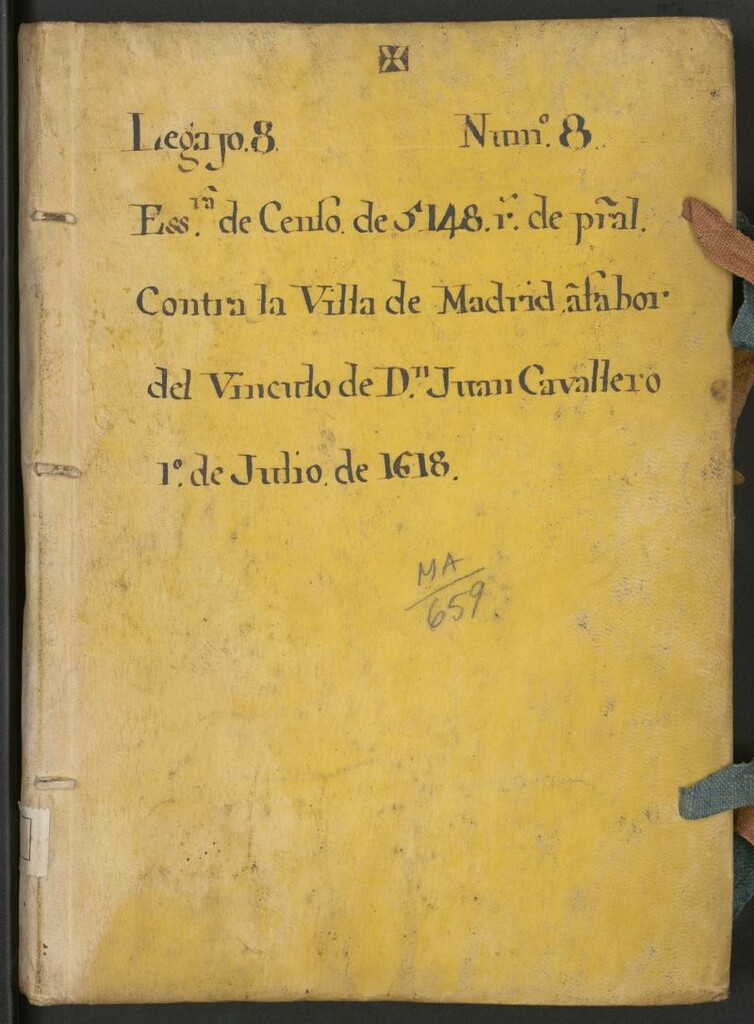 Legajo. 8. Num.º 8.
Ess.ra de Censo. de 5148. r.s de pral.
Contra la Villa de Madrid, â fabor
del Vinculo de D.n Juan Cavallero
1.º de Julio, de 1618.
MA
659